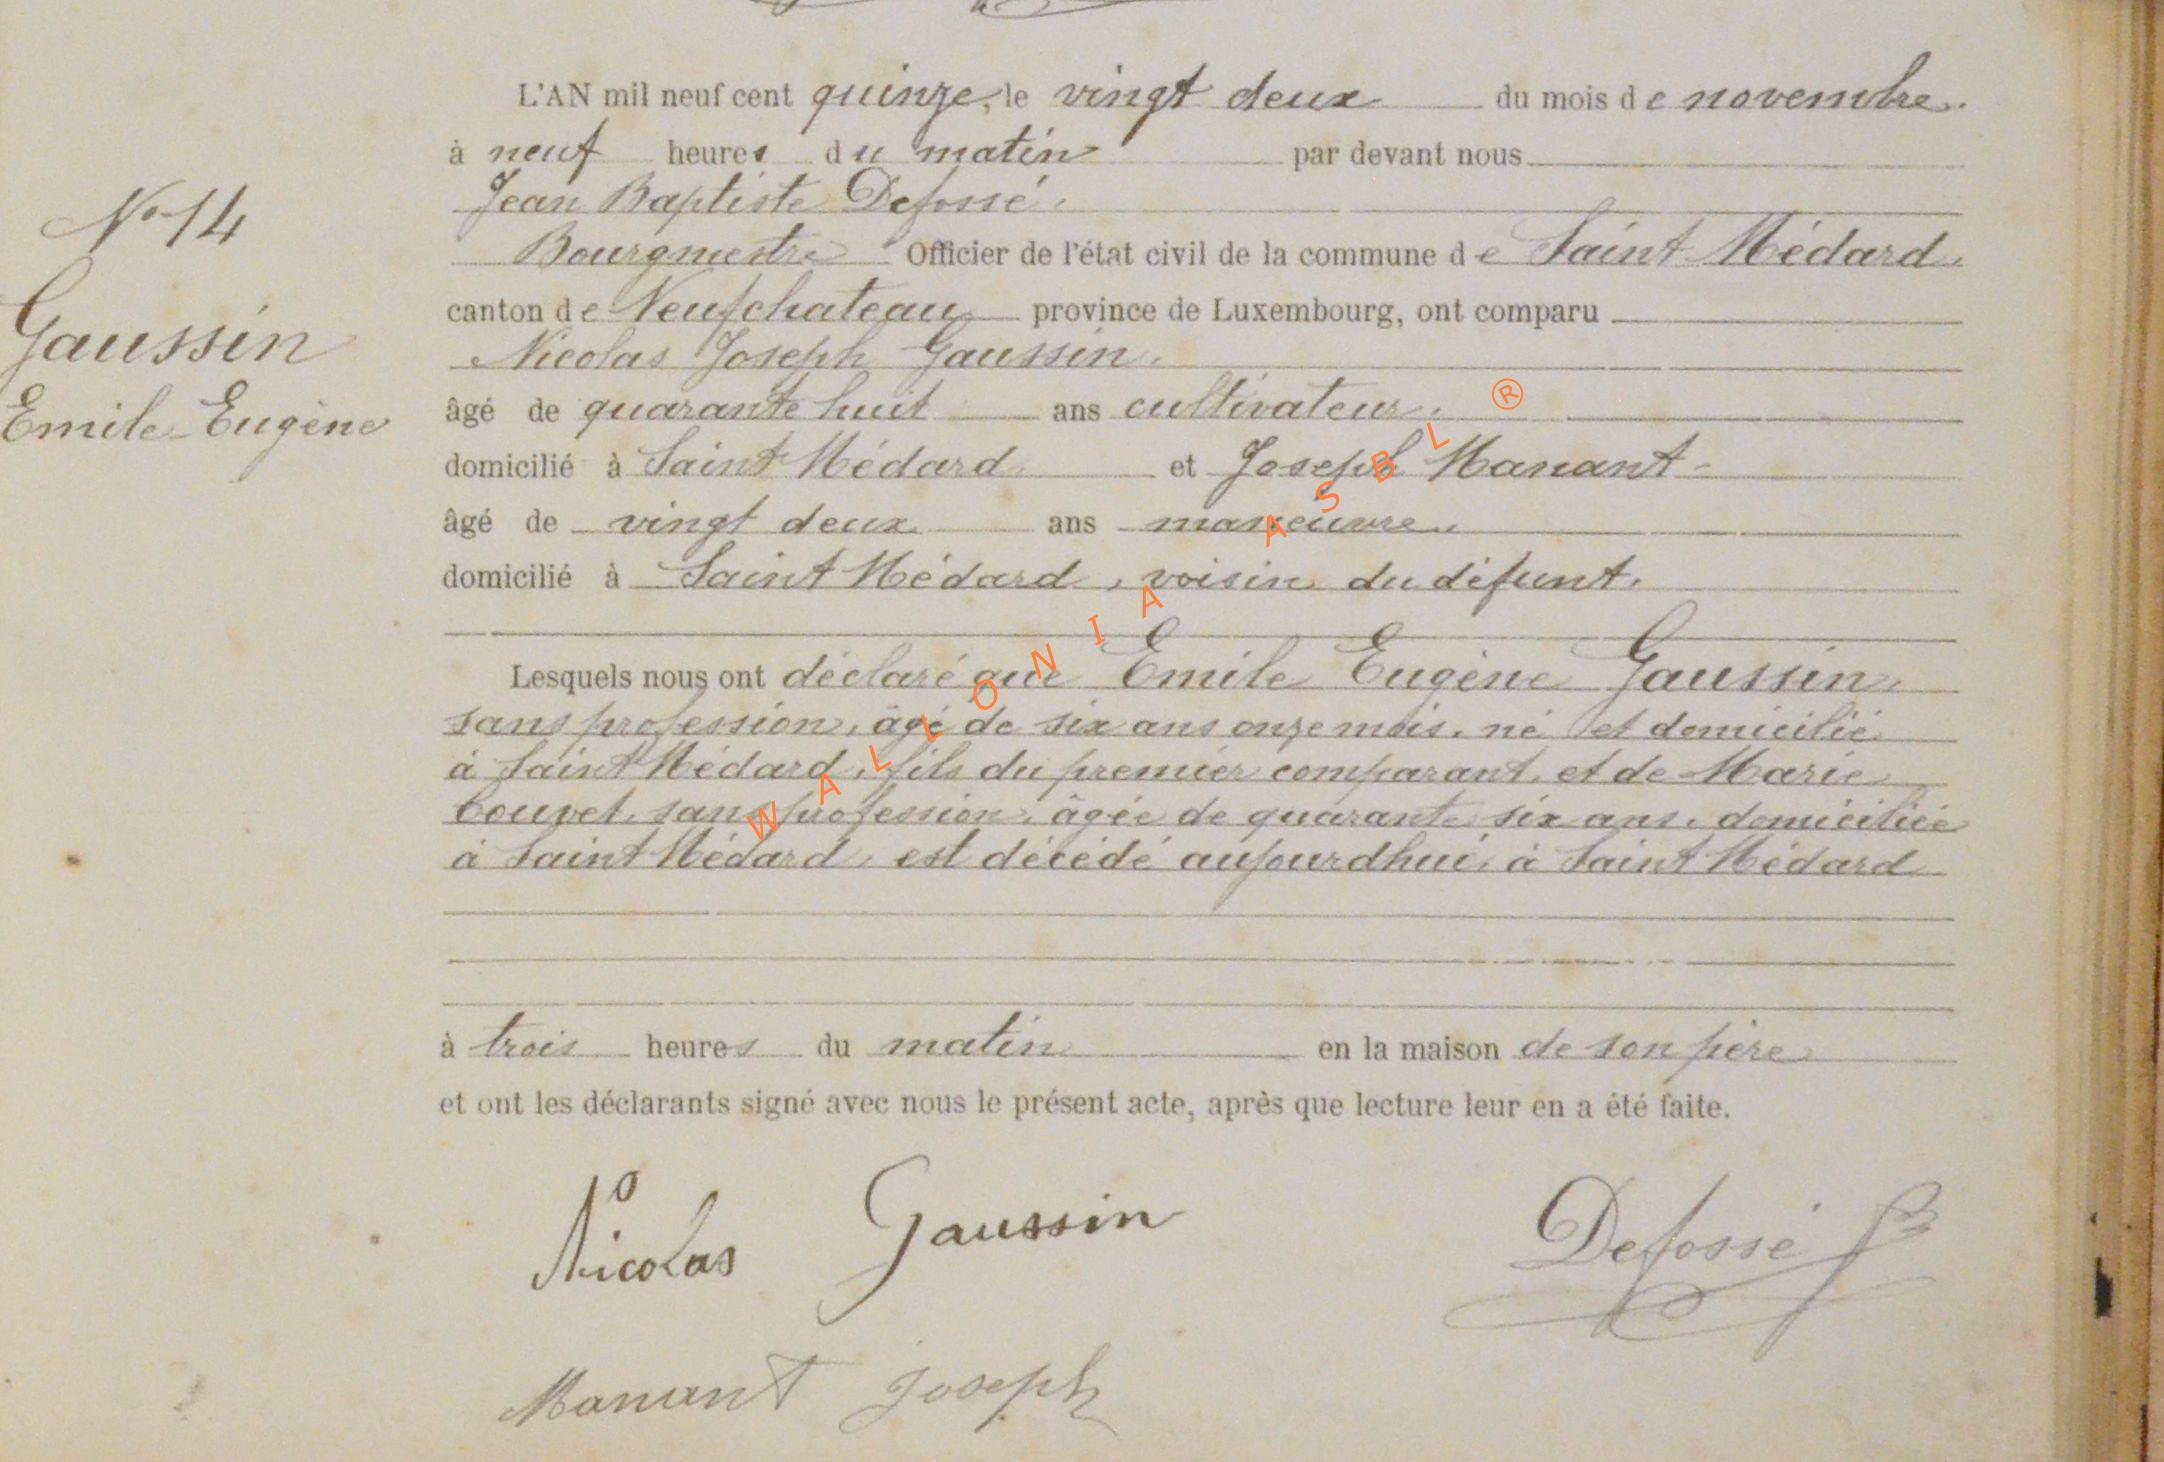 L'AN mil neuf cent quinze, le vingt deux du mois de novembre.
à neuf heures du matin par devant nous
Jean Baptiste Defossé.
Bourgmestre Officier de l'état civil de la commune de Saint Médard.
canton de Neufchateau province de Luxembourg, ont comparu
Nicolas Joseph Gaussin.
âgé de quarante huit ans cultivateur.
domicilié à Saint Médard et Joseph Manant
âgé de vingt deux ans manœuvre.
domicilié à Saint Médard, voisin du défunt.
N° 14
Gaussin
Emile Eugène
Lesquels nous ont déclaré que Emile Eugène Gaussin,
sans profession, âgé de six ans onze mois, né et domicilié
à Saint Médard, fils du premier comparant, et de Marie
Couvet, sans profession, âgée de quarante six ans, domiciliée
à Saint Médard, est décédé aujourdhui, à Saint Médard
à trois heures du matin en la maison de son père
et ont les déclarants signé avec nous le présent acte, après que lecture leur en a été faite.
Nicolas Gaussin
Defossé JB
Manant Joseph
WALLONIA ASBL ®